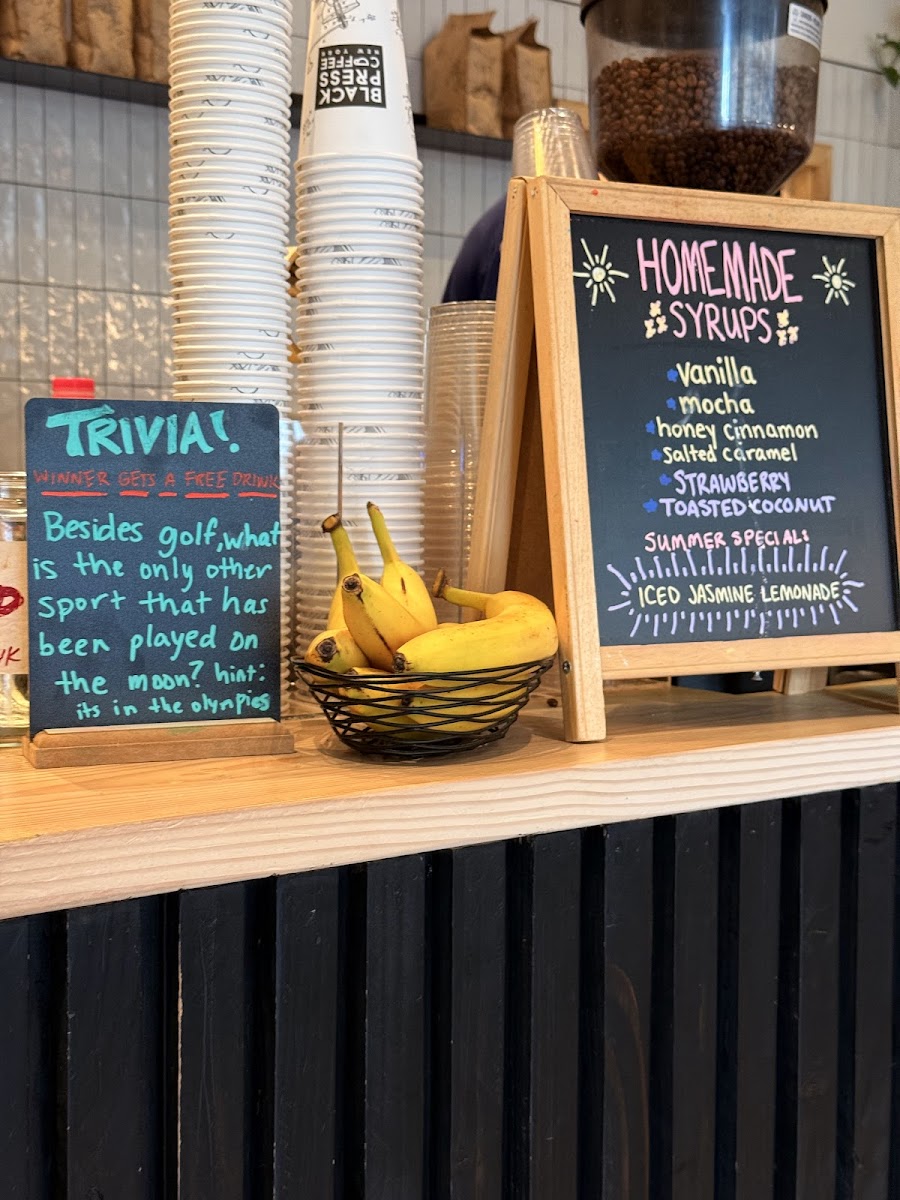 BLACK
PRESS
COFFEE
NEW YORK
TRIVIA!
WINNER GETS A FREE DRINK
Besides golf, what
is the only other
sport that has
been played on
the moon? hint:
its in the olympics
HOMEMADE
SYRUPS
vanilla
mocha
honey cinnamon
salted caramel
STRAWBERRY
TOASTED COCONUT
SUMMER SPECIAL:
ICED JASMINE LEMONADE